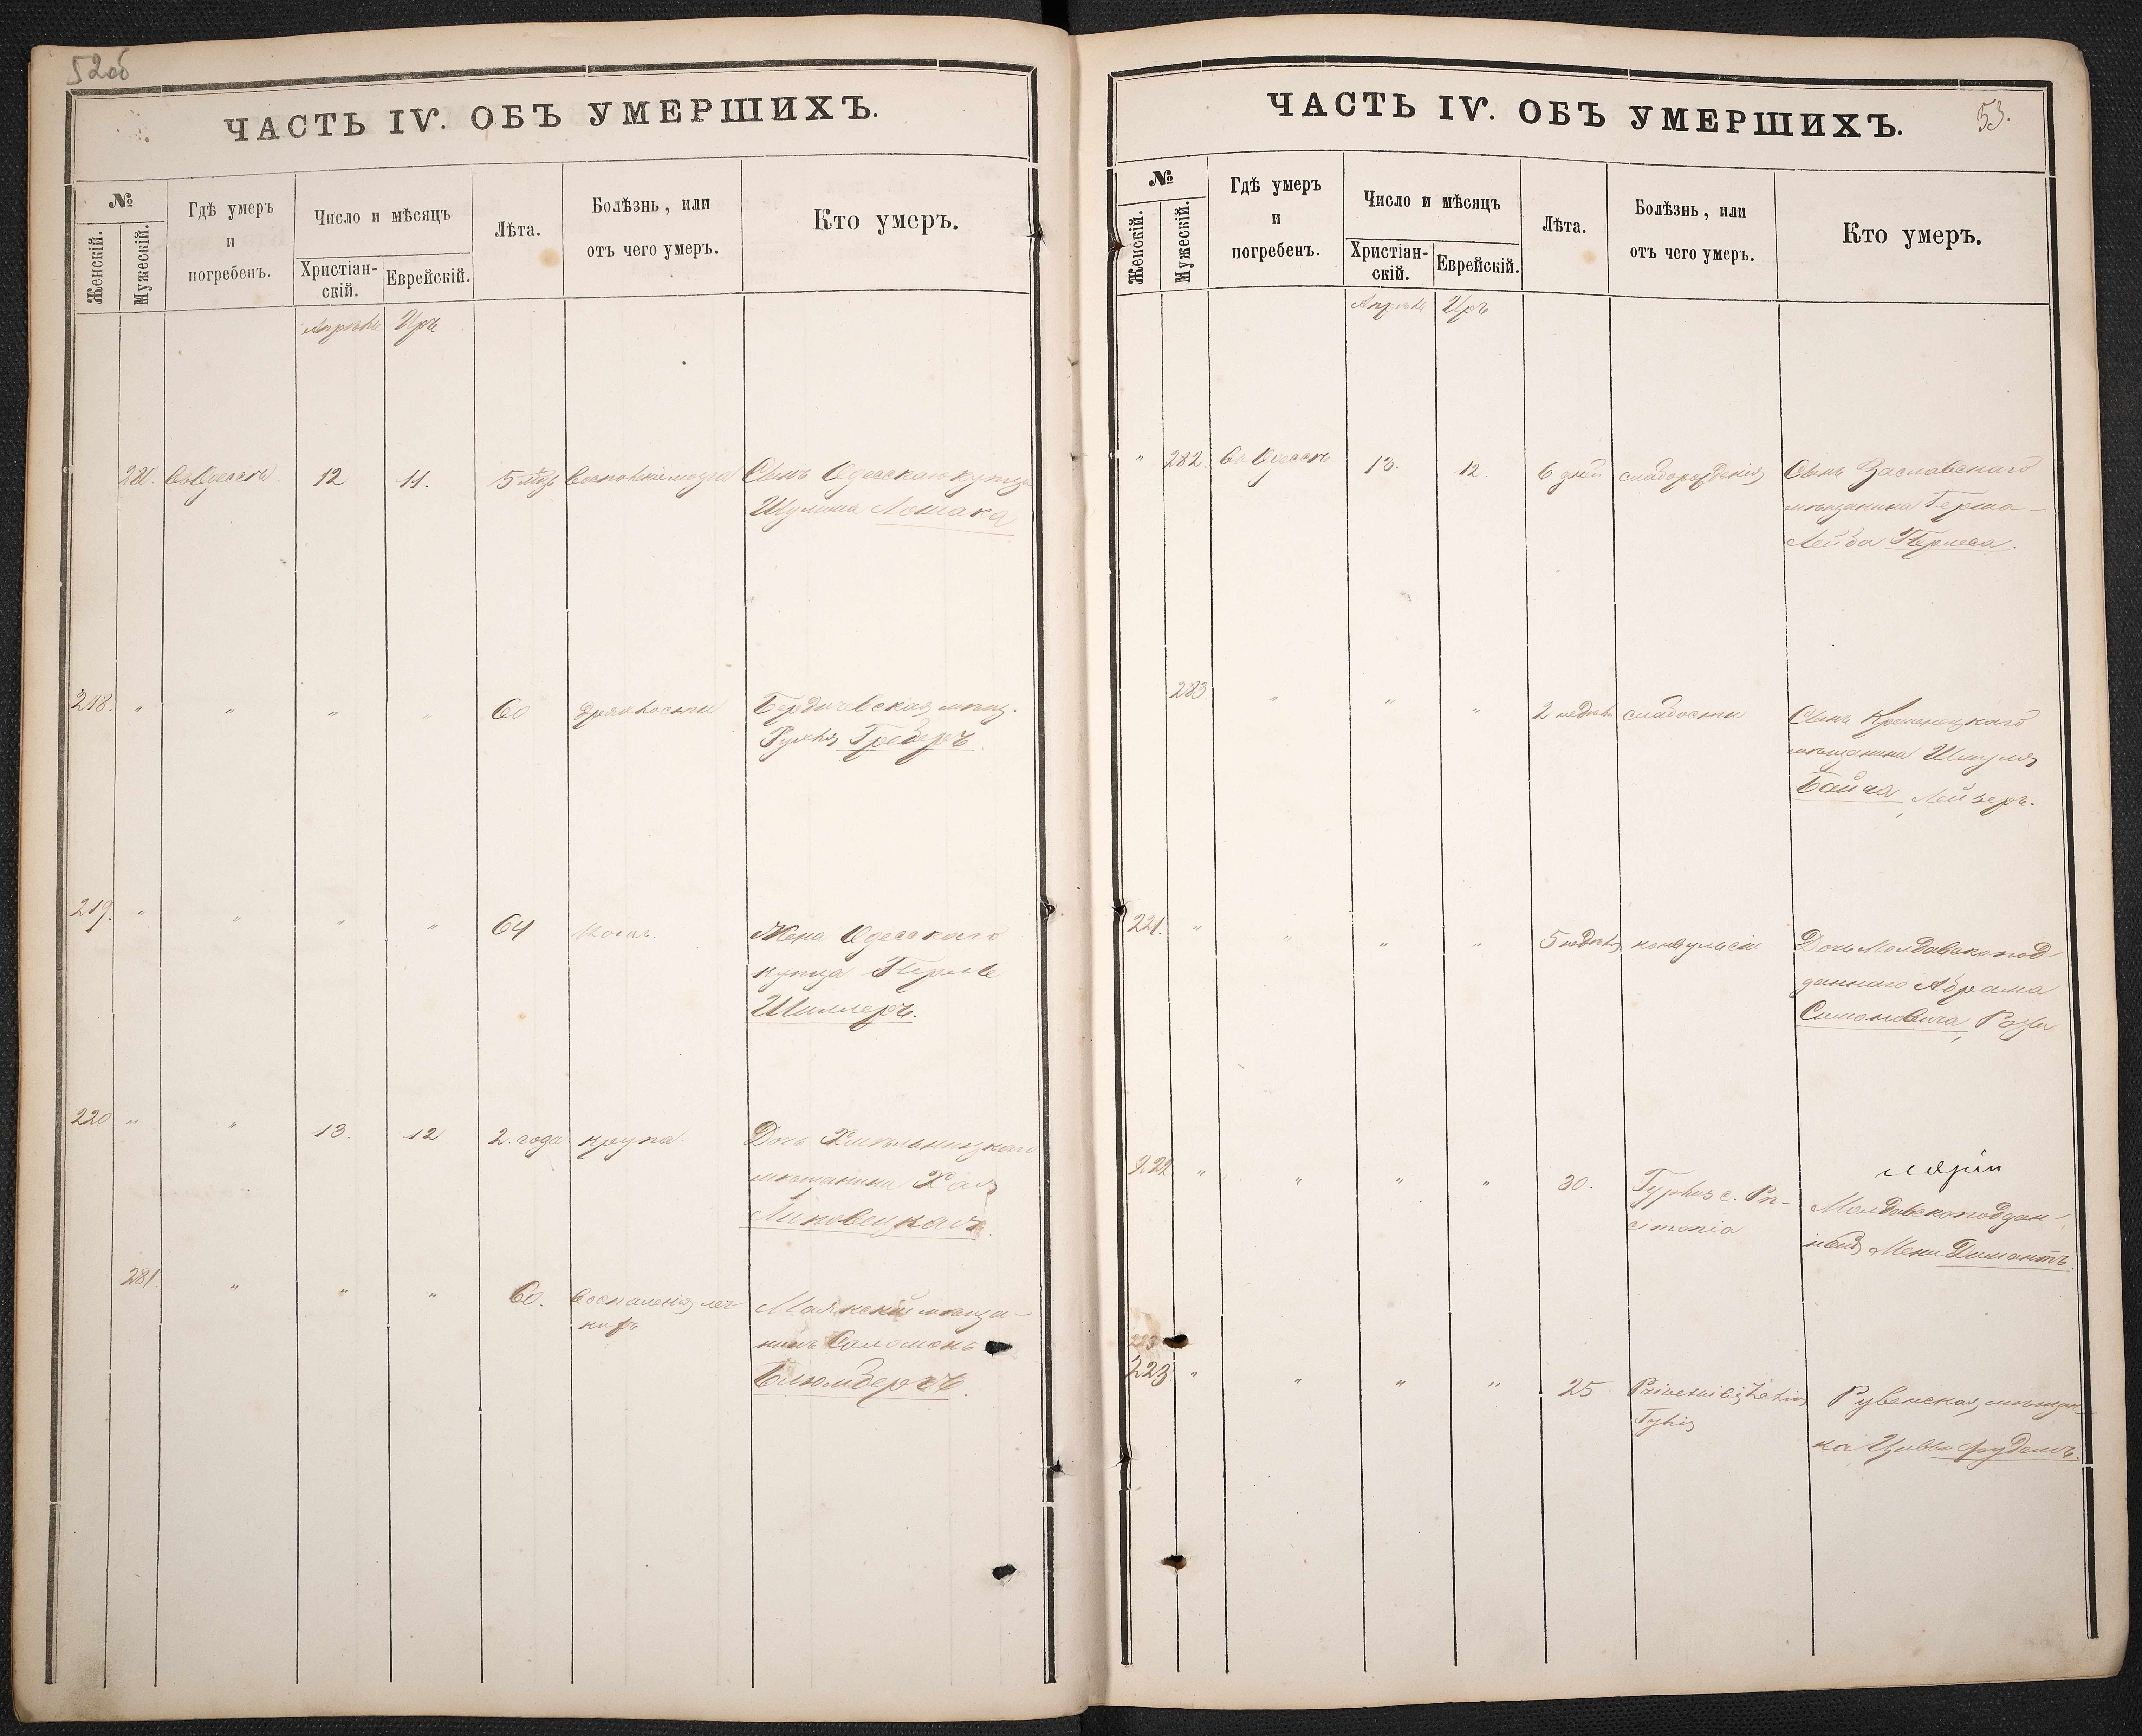 52об
ЧАСТЬ IV. ОБЪ УМЕРШИХЪ.
№
Женскій.
Мужескій.
Гдѣ умеръ
и
погребенъ.
Число и мѣсяцъ
Христіан-
скій.
Еврейскій.
Лѣта.
Болѣзнь, или
отъ чего умеръ.
Кто умеръ.
Апрѣль Иръ
280. въ Одессѣ 12 11. 5 мѣс. Воспаленіе мозга Сынъ Одесскаго купца
Шулима Лошака
218. " " " " 60 дряхлости Бердичевская мѣщ.
Рухля Греберъ
219. " " " " 64 Жена Одесскаго
купца Перль
Шиллеръ.
220 " " 13. 12 2. года крупа Дочь Хмѣльницкаго
мѣщанина Хая
Липовецкая.
281. " " " 60. Воспаленія лег-
кихъ
Маякскій мѣща-
нинъ Соломонъ
Блюмбергъ.
ЧАСТЬ IV. ОБЪ УМЕРШИХЪ.
53.
№
Женскій.
Мужескій.
Гдѣ умеръ
и
погребенъ.
Число и мѣсяцъ
Христіан-
скій.
Еврейскій.
Лѣта.
Болѣзнь, или
отъ чего умеръ.
Кто умеръ.
Апрѣль Иръ
" 282. въ Одессѣ 13. 12. 6 дней слаборожденія Сынъ Заславскаго
мѣщанина Герша-
Лейба Перлеса.
283. " " " 2 недѣли слабости Сынъ Кременецкаго
мѣщанина Шмуля
Байча, Лейзеръ.
221. " " " " 5 недѣль конвульсіи Дочь Молдавскопод-
даннаго Абрама
Симоновича, Розы
222 " " " " 30. Typhus c. Pn-
Молдавскоподдан-
ная Мени Димантъ.
223
223 " " " " 25 Рувенская мѣщан-
ка Цивье Фудемъ.